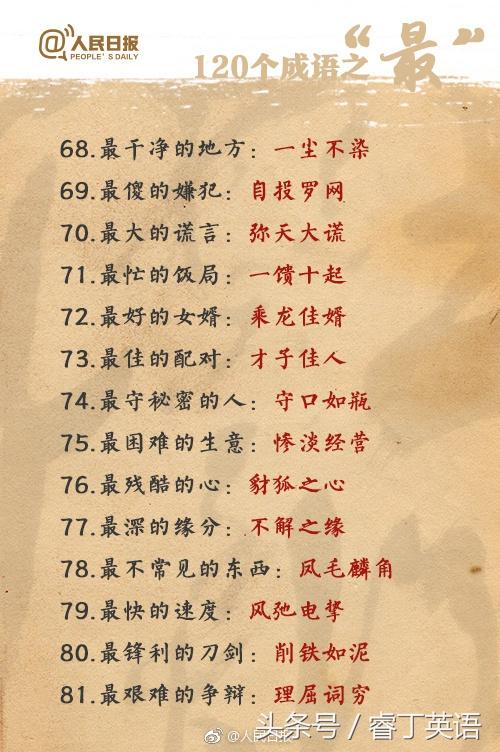 @人民日报
PEOPLE'S DAILY
120个成语之“最”
68.最干净的地方：一尘不染
69.最傻的嫌犯：自投罗网
70.最大的谎言：弥天大谎
71.最忙的饭局：一馈十起
72.最好的女婿：乘龙佳婿
73.最佳的配对：才子佳人
74.最守秘密的人：守口如瓶
75.最困难的生意：惨淡经营
76.最残酷的心：豺狐之心
77.最深的缘分：不解之缘
78.最不常见的东西：凤毛麟角
79.最快的速度：风弛电掣
80.最锋利的刀剑：削铁如泥
81.最艰难的争辩：理屈词穷
@人民日报
头条号／睿丁英语